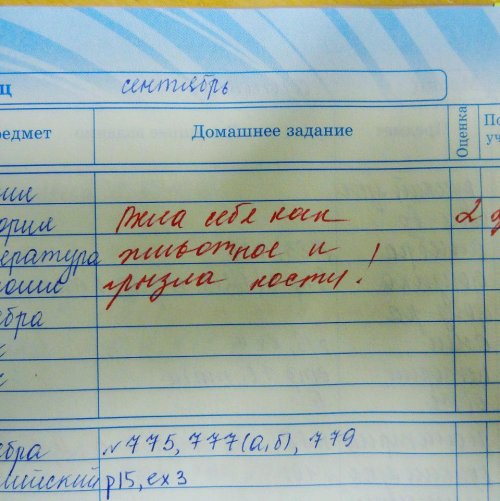 ц сентябрь
редмет Домашнее задание Оценка По уч
ория Вела себя как 2
ература животное и
грызла кости!
ебра
ебра №775, 777(а,б), 779
лийский p15, ex3